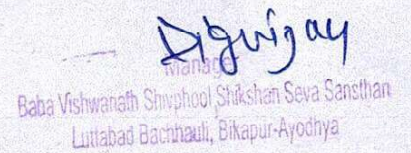 Digvijay
Manager
Baba Vishwanath Shivphool Shikshan Seva Sansthan
Luttabad Bachhauli, Bikapur-Ayodhya